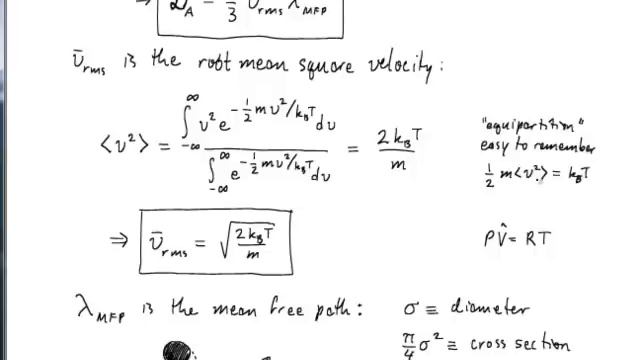 ⇒ 𝒟_A = 1/3 ῡ_rms λ_MFP
ῡ_rms is the root mean square velocity:
⟨v²⟩ = ∫_{-∞}^{∞} v² e^{-½mv²/k_BT} dv / ∫_{-∞}^{∞} e^{-½mv²/k_BT} dv = 2k_BT / m
"equipartition"
easy to remember
½ m⟨v²⟩ = k_BT
⇒ ῡ_rms = √(2k_BT / m)
PV̂ = RT
λ_MFP is the mean free path: σ ≡ diameter
π/4 σ² ≡ cross section